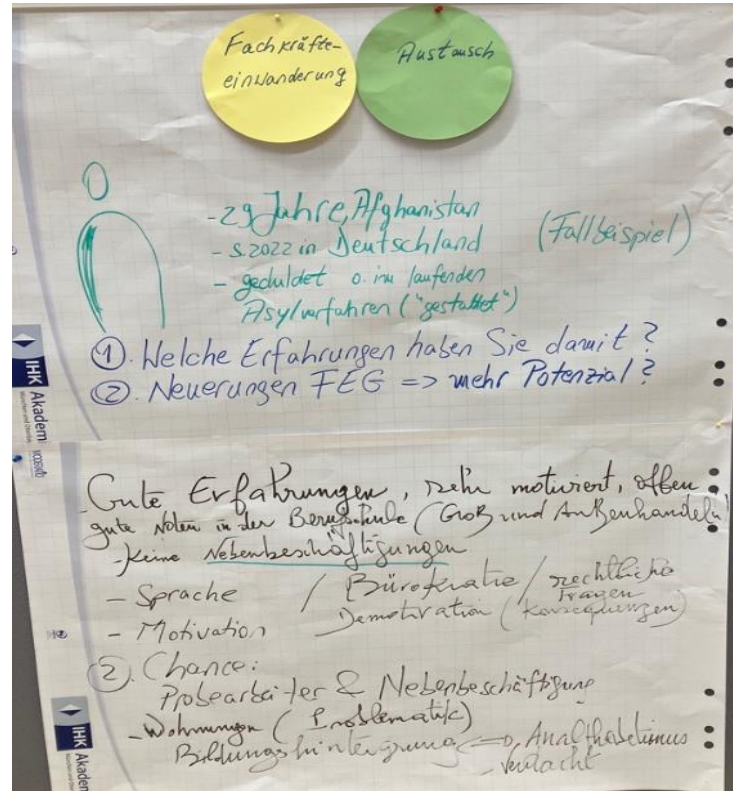 Fachkräfte-
einwanderung
Austausch
- 29 Jahre, Afghanistan
- s. 2022 in Deutschland
(Fallbeispiel)
- geduldet o. im laufenden
Asylverfahren ("gestattet")
① Welche Erfahrungen haben Sie damit?
②. Neuerungen FEG => mehr Potenzial?
IHK Akademi
- Gute Erfahrungen, sehr motiviert, offen
gute Noten in der Berufschule (Groß und Außenhandel)
- Keine Nebenbeschäftigungen
- Sprache / Bürokratie / rechtliche Fragen
- Motivation Demotivation (Konsequenzen)
②. Chance:
Probearbeiter & Nebenbeschäftigung
- Wohnungen (Problematik)
Bildungshintergrung Analthabetismus
verdacht
IHK Akadem